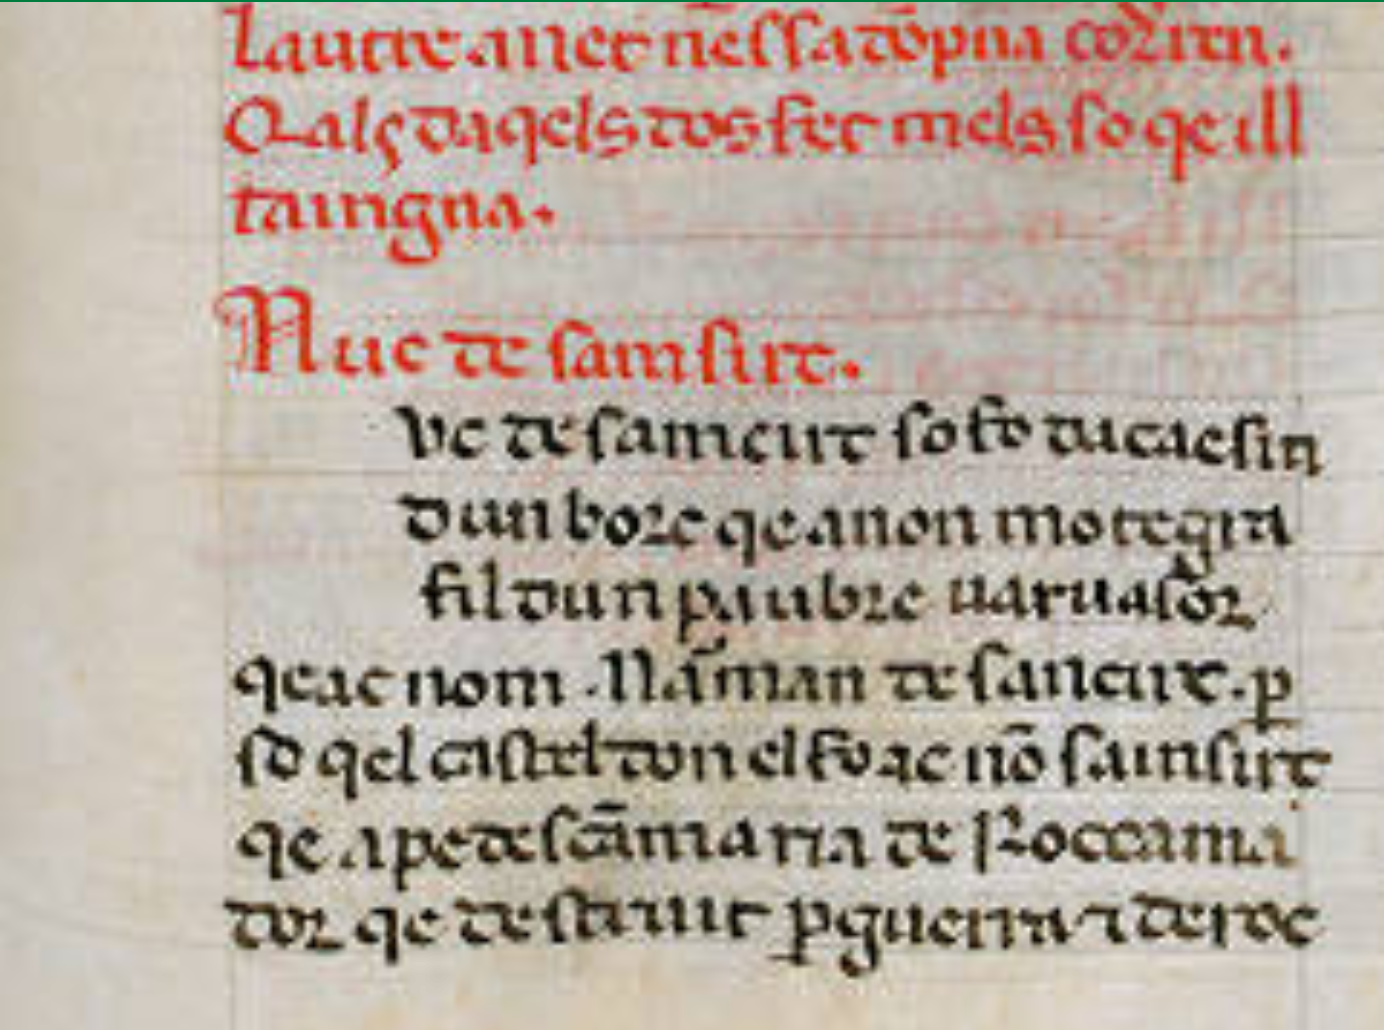 Lautre anet nessa dōpna corren.
Qals daqels dos fez mels so qe ill
taingna.
Nuc de sainsirc.
Vc de saincirc so fo dacaersin
dun borc qe anon moregra
fil dun paubre uaruasor
qe ac nom .Narman de sancirc. p
so qel castel don el fo ac nō sainsirc
qe ape de scā maria de Roccama
dor qe destruit p guerra ⁊ deroc